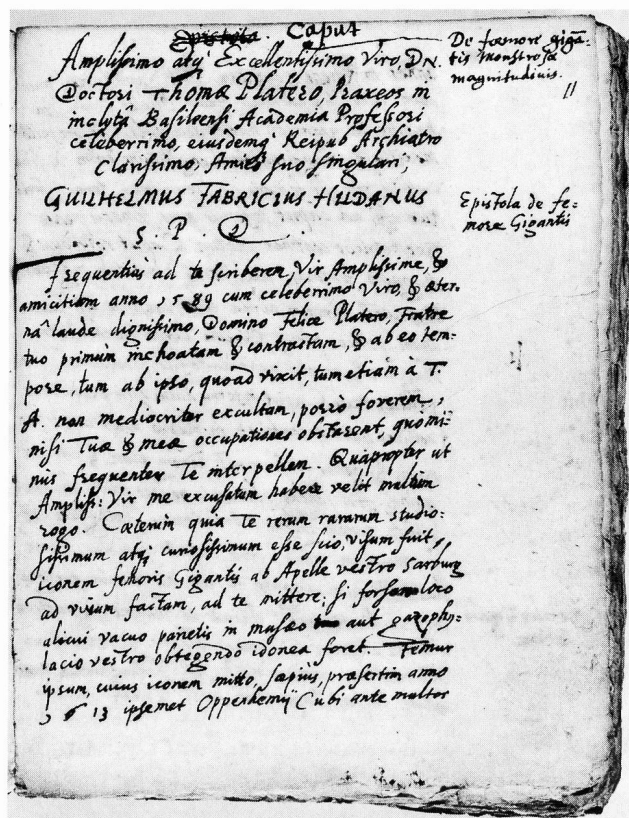 Epistola. Caput
De fœmore gigā-
tis monstrosæ
magnitudinis.
11
Amplissimo atq; Excellentissimo Viro, DN.
Doctori Thomæ Platero, Praxeos in
inclytâ Basiliensi Academia Professori
celeberrimo, eiusdemq; Reipub Archiatro
Clarissimo, Amico suo singulari,
GUILHELMUS FABRICIUS HILDANUS
Epistola de fe=
more Gigantis
S. P. D
Frequentius ad te scriberem, Vir Amplissime, &
amicitiam anno 1589 cum celeberrimo Viro, & æter-
nâ laude dignissimo, Domino Felice Platero, Fratre
tuo primùm inchoatam & contractam, & ab eo tem-
pore, tum ab ipso, quoad vixit, tum etiam à T.
A. non mediocriter excultam, porrò foverem,
nisi Tuæ & meæ occupationes obstarent, quomi-
nus frequenter Te interpellem. Quapropter ut
Ampliss: Vir me excusatum habere velit
rogo. Cæterùm quia Te rerum rararum studio-
sissimum atq; curiosissimum esse scio, visum fuit,
iconem femoris Gigantis ab Apelle vestro Sarburg
ad vivum factam, ad te mittere: si forsan loco
alicui vacuo parietis in musæo aut gazophy-
lacio vestro obtegendo idonea foret. Femur
ipsum, cuius iconem mitto, sæpius, præsertim anno
1613 ipsemet Oppenhemij Cubi ante multos